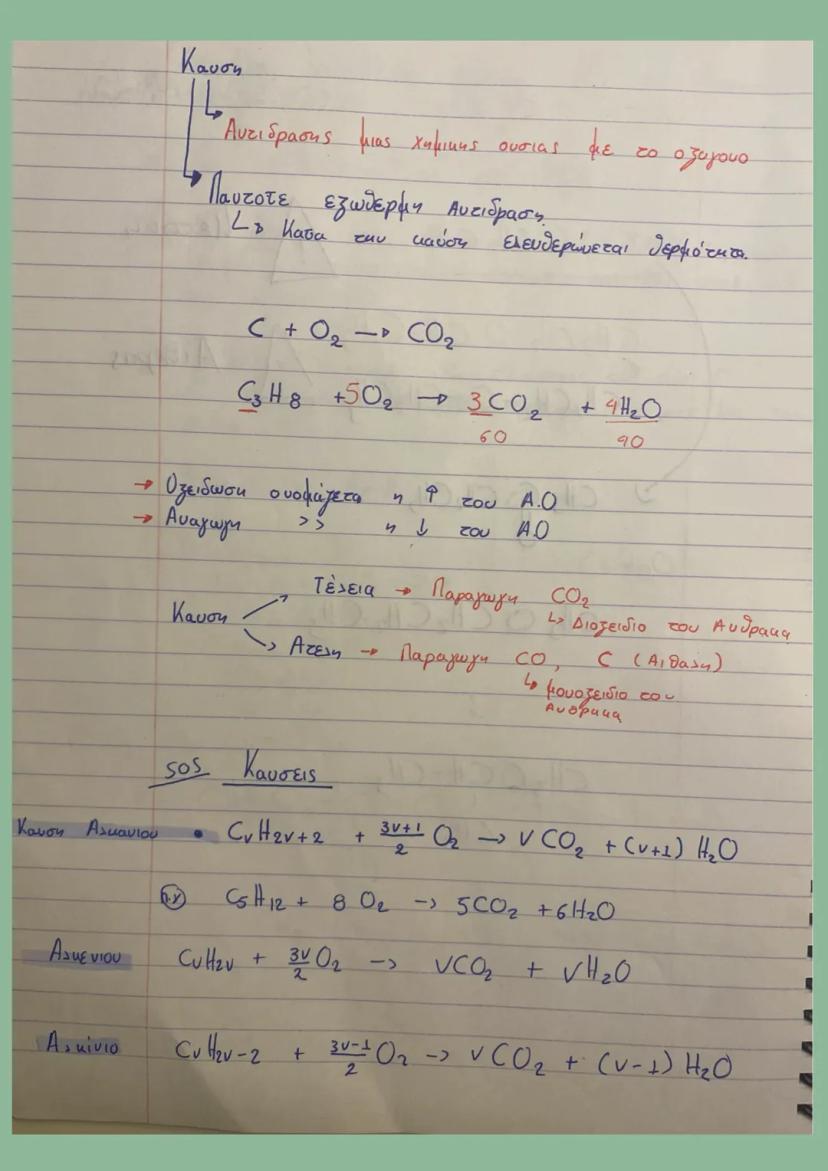 Καυση
Αντιδρασης μιας χημικης ουσιας με το οξυγονο
Παντοτε εξωθερμη Αντιδραση.
↳ Κατα την καύση ελευθερώνεται θερμότητα.
C + O₂ → CO₂
C₃H8 + 5O₂ → 3CO₂ + 4H₂O
6O 4O
→ Οξειδωση ονομάζεται η ↑ του Α.Ο
→ Αναγωγη >> η ↓ του Α.Ο
Τέλεια → Παραγωγη CO₂
↳ Διοξειδιο του Ανθρακα
Καυση
Ατελη → Παραγωγη CO, C (Αιθαλη)
↳ μονοξειδιο του
Ανθρακα
SOS Καυσεις
Καυση Αλκανιου • CνH2ν+2 + 3ν+1/2 O₂ → νCO₂ + (ν+1) H₂O
πχ C5H12 + 8 O₂ → 5CO₂ + 6H₂O
Αλκενιου CνH2ν + 3ν/2 O₂ → νCO₂ + νH₂O
Αλκίνιο CνH2ν-2 + 3ν-1/2 O₂ → νCO₂ + (ν-1) H₂O